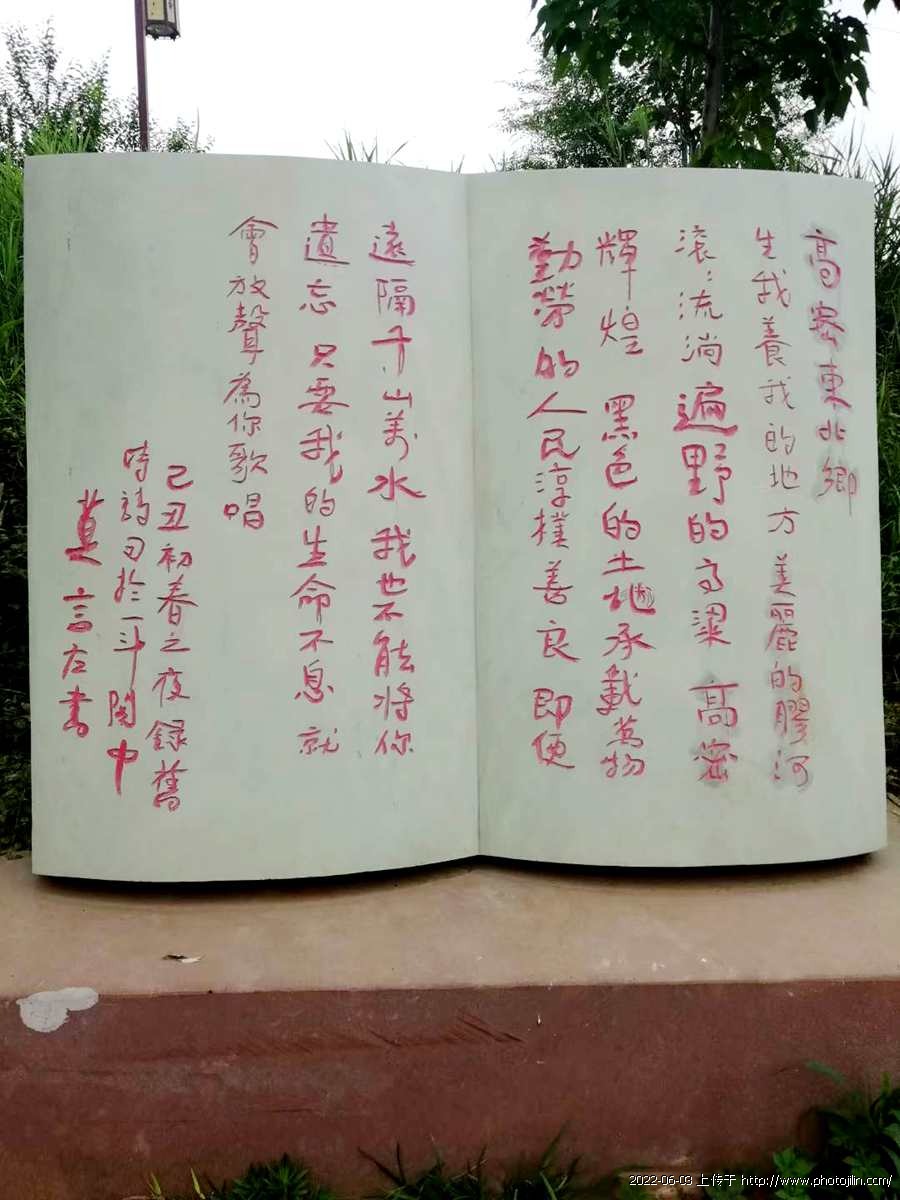 高密東北鄉
生我養我的地方 美麗的膠河
滚滚流淌 遍野的高粱 高密
輝煌 黑色的土地承載萬物
勤勞的人民淳樸善良 即便
遠隔千山萬水 我也不能將你
遺忘 只要我的生命不息 就
會放聲為你歌唱
己丑初春之夜錄舊
時詩句於一斗閣中
莫言左書
2022-06-03 上传于 http://www.photojilin.com/